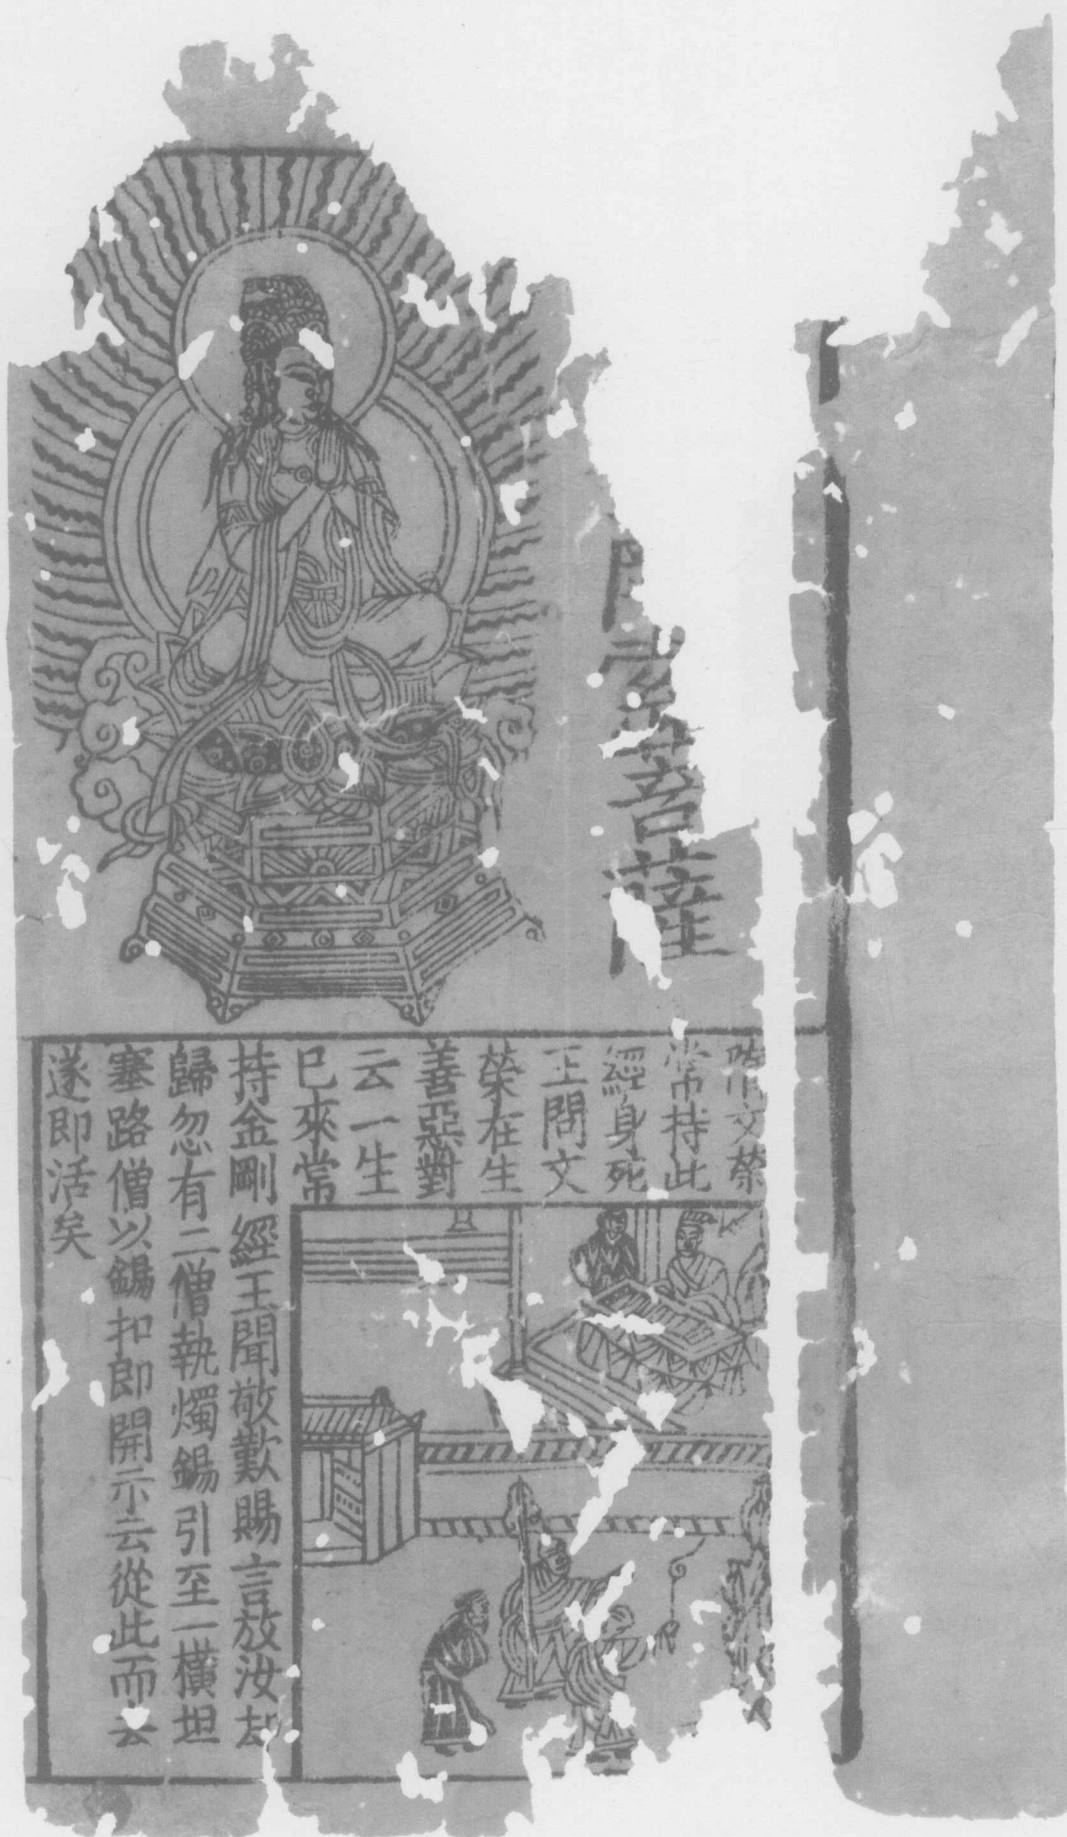 菩薩
文榮
常持此
經身死
王問文
榮在生
善惡對
云一生
巳來常
持金剛經王聞敬歎賜言放汝却
歸忽有二僧執燭錫引至一橫坦
塞路僧以錫扣即開示云從此而去
遂即活矣